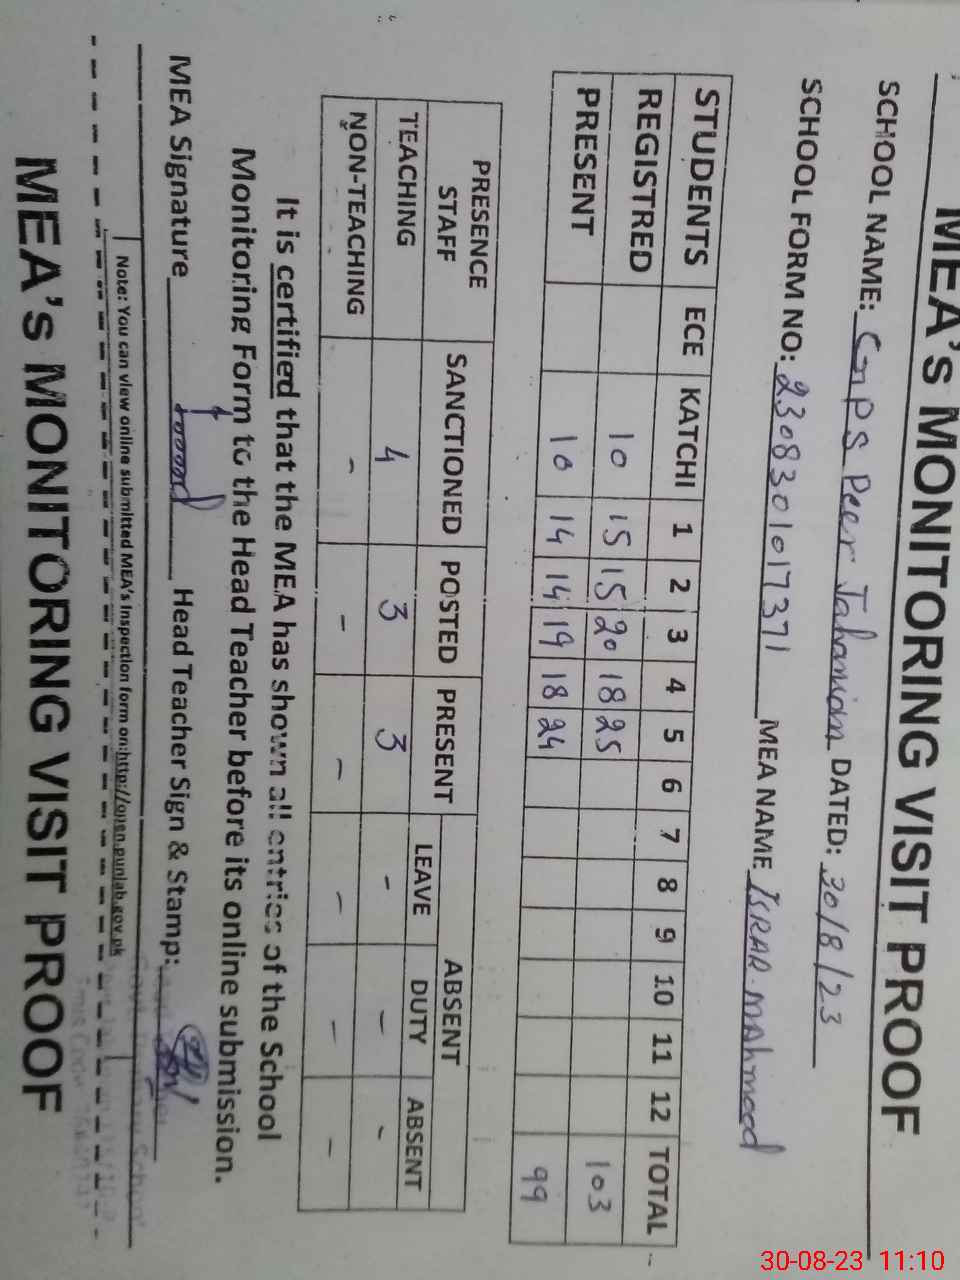 MEA's MONITORING VISIT PROOF
SCHOOL NAME: GPS Peer Jahanian DATED: 30/8/23
SCHOOL FORM NO: 2308301017371 MEA NAME ISRAR MAhmood
STUDENTS ECE KATCHI 1 2 3 4 5 6 7 8 9 10 11 12 TOTAL
REGISTRED 10 15 15 20 18 25 103
PRESENT 10 14 14 19 18 24 99
PRESENCE STAFF SANCTIONED POSTED PRESENT ABSENT
LEAVE DUTY ABSENT
TEACHING 4 3 3 - - -
NON-TEACHING - - - - - -
It is certified that the MEA has shown all entries of the School
Monitoring Form to the Head Teacher before its online submission.
MEA Signature Head Teacher Sign & Stamp:
Note: You can view online submitted MEA's Inspection form on:http://open.punjab.gov.pk
MEA's MONITORING VISIT PROOF
30-08-23 11:10